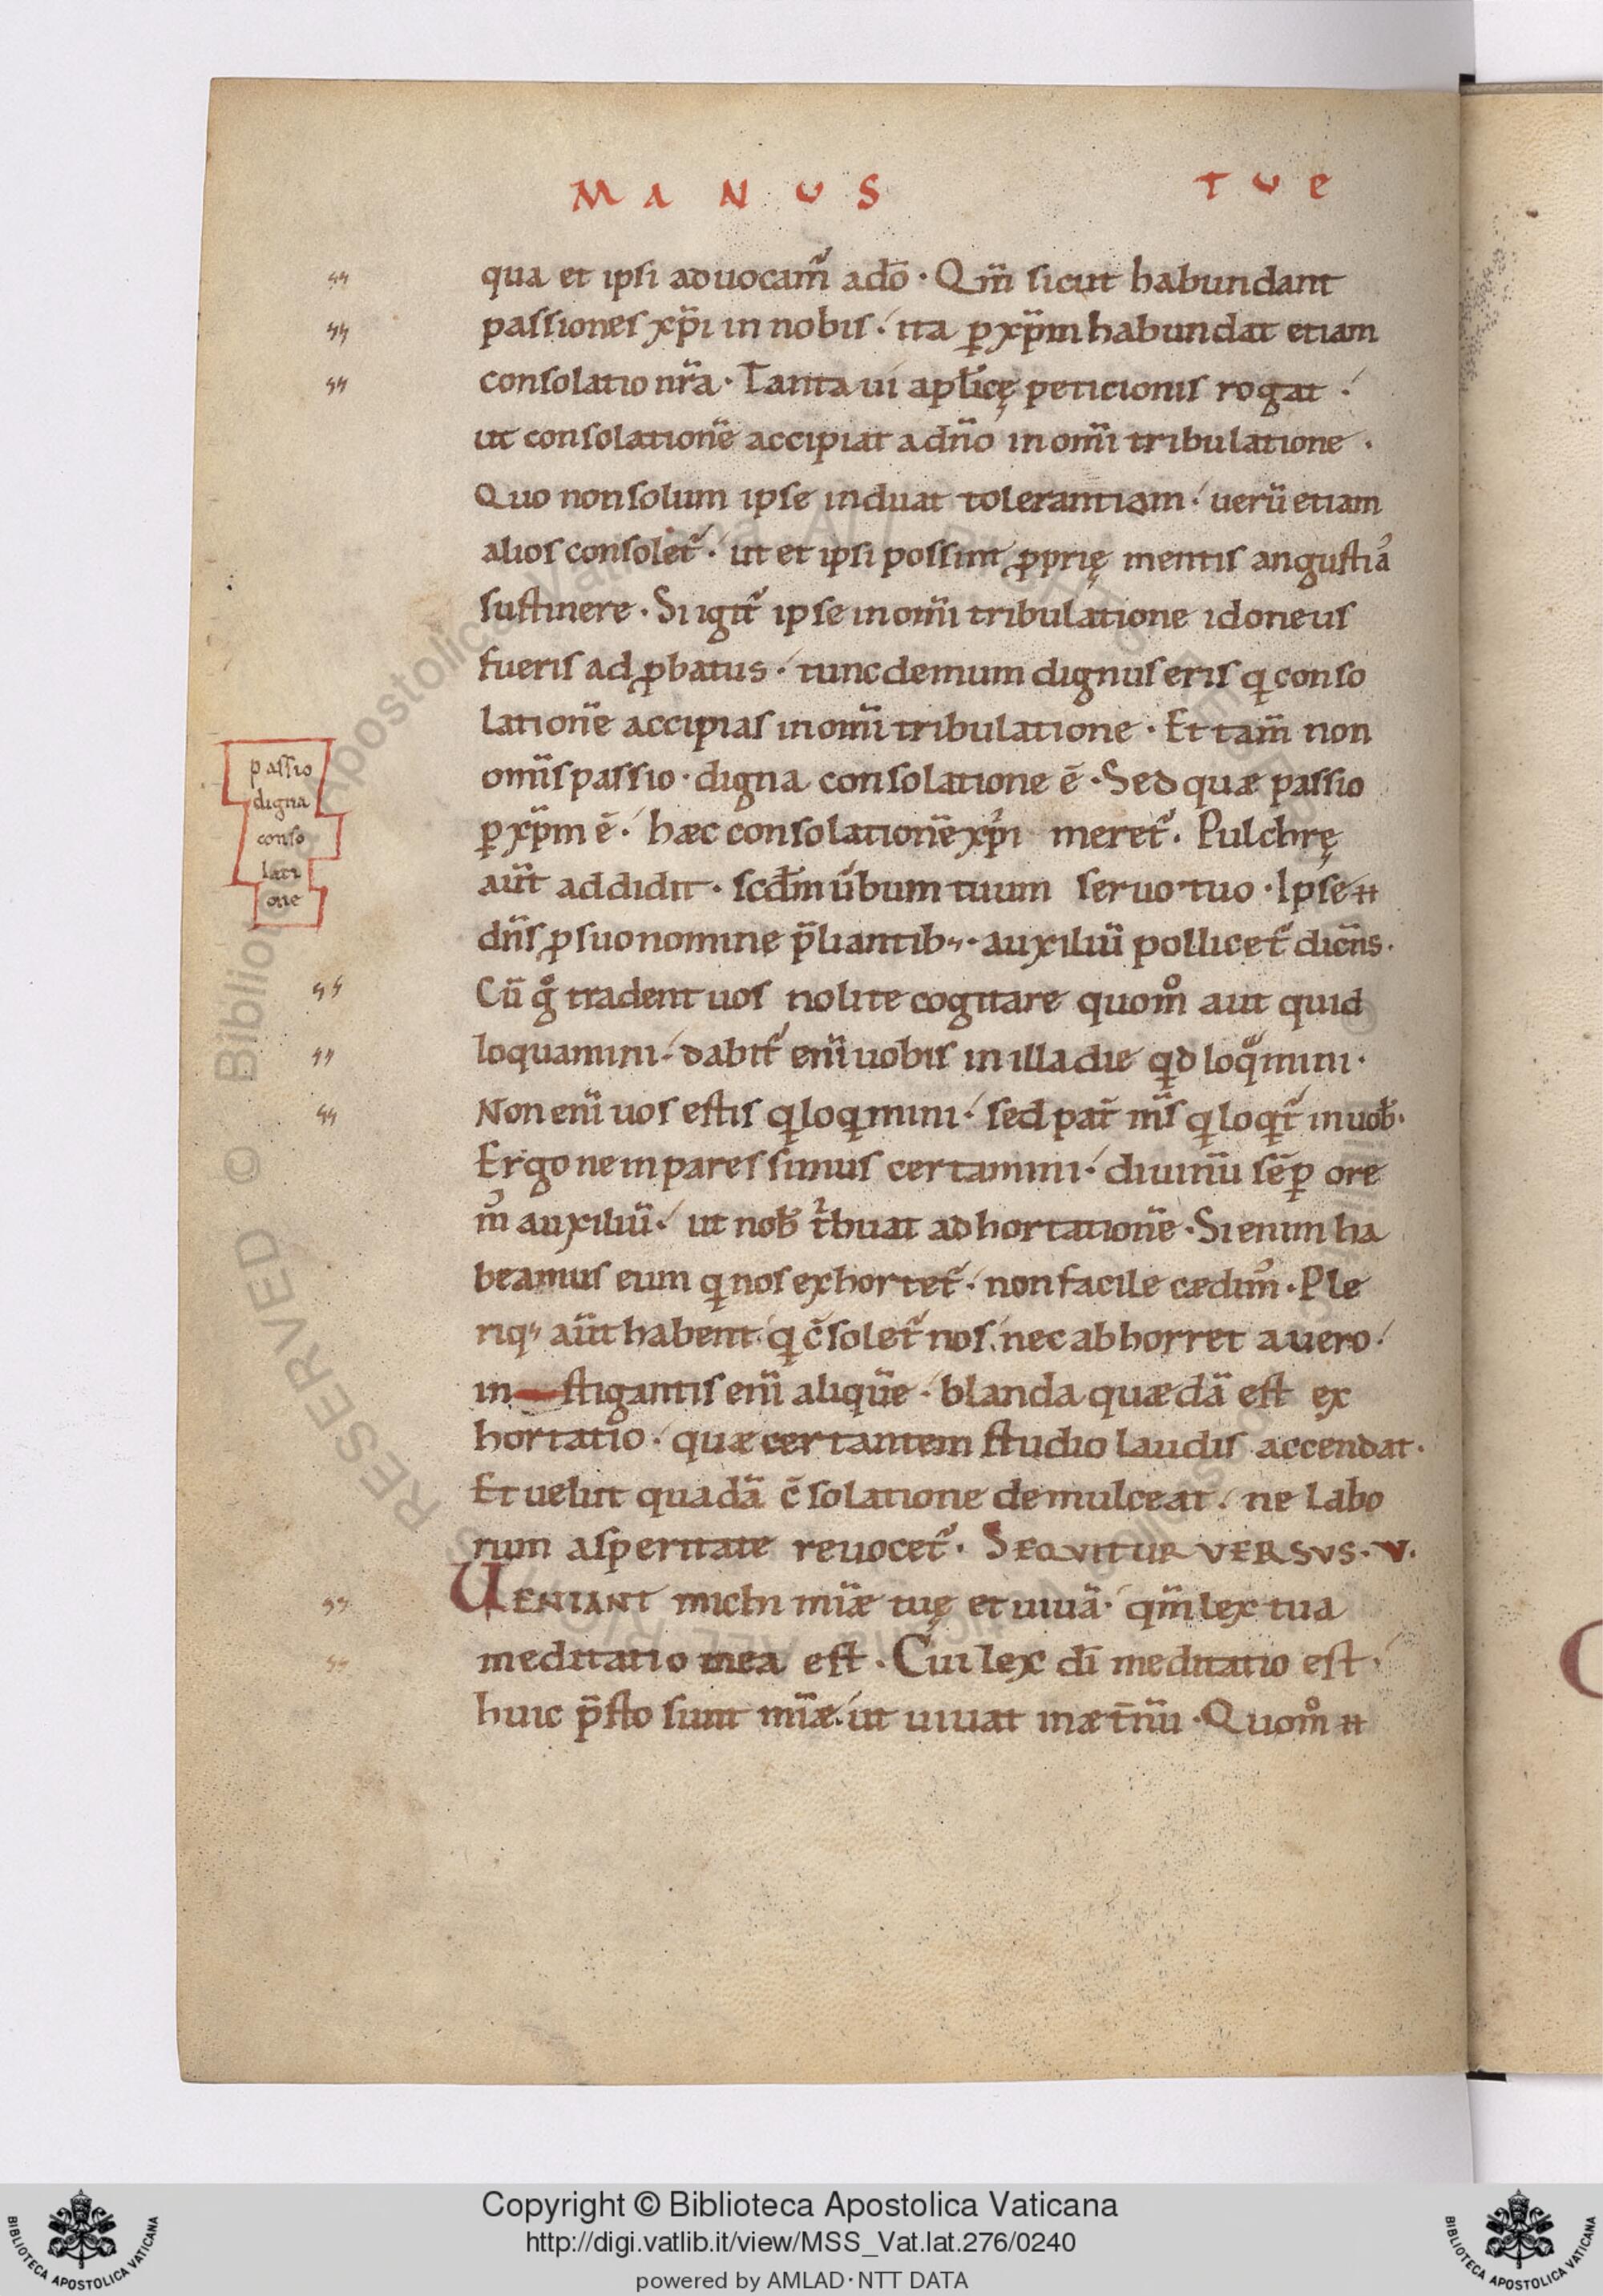 MANUS TUE
qua et ipsi aduocam᷑ ado̅ · Qm̅ sicut habundant
passiones xp̅i in nobis · ita ꝑ xp̅m habundat etiam
consolatio nr̅a · Tanta ui apl̅icę peticionis rogat ·
ut consolatione̅ accipiat a dn̅o in om̅i tribulatione ·
Quo non solum ipse induat tolerantiam · ueru̅ etiam
alios consolet᷑ · ut et ipsi possint ꝓprię mentis angustia̅
sustinere · Si igit᷑ ipse in om̅i tribulatione idoneus
fueris adꝓbatus · tunc demum dignus eris q conso
latione̅ accipias in om̅i tribulatione · Et tam̅ non
om̅is passio · digna consolatione e̅ · Sed quæ passio
ꝑ xp̅m e̅ · hæc consolatione̅ xp̅i meret᷑ · Pulchrę
au̅t addidit · scd̅m u̅bum tuum seruo tuo · Ipse ⁊
dn̅s ꝓ suo nomine p̅liantib; · auxiliu̅ pollicet᷑ dice̅s ·
Cu̅ gͦ tradent uos nolite cogitare quomͦ aut quid
loquamini · dabit᷑ eni̅ uobis in illa die qd loqͣmini ·
Non eni̅ uos estis q loqmini · sed pat̅ m̅s q loqt᷑ in uob̅ ·
Ergo ne inpares simus certamini · diuinu̅ se̅ꝑ ore
m᷒ auxiliu̅ · ut nob̅ tͥbuat adhortatione̅ · Si enim ha
beamus eum q nos exhortet᷑ · non facile cædim᷒ · Ple
riq; au̅t habent · q c̅solet᷑ nos · nec abhorret a uero ·
in stigantis eni̅ alique̅ · blanda quæda̅ est ex
hortatio · quæ certantem studio laudis accendat ·
Et uelut quada̅ c̅solatione demulceat · ne labo
rum asperitate reuocet᷑ · SEQVITUR VERSVS · V ·
UENIANT michi mi̅æ tuę et uiua̅ · qm̅ lex tua
meditatio mea est · Cui lex di̅ meditatio est ·
huic p̅sto sunt mi̅æ · ut uiuat in æt̅nu̅ · Quomͦ ⁊
passio
digna
conso
lati
one
© Biblioteca Apostolica Vaticana ALL RIGHTS RESERVED
Copyright © Biblioteca Apostolica Vaticana
http://digi.vatlib.it/view/MSS_Vat.lat.276/0240
powered by AMLAD·NTT DATA
BIBLIOTECA APOSTOLICA VATICANA
BIBLIOTECA APOSTOLICA VATICANA